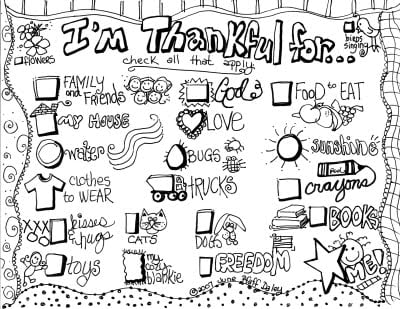 I'm Thankful for...
check all that apply!
flowers
birds singing
FAMILY and FRiENDS
God
FOOD to EAT
MY HOUSE
LOVE
sunshine
water
BUGS
clothes to WEAR
TRUCKS
PooL
crayons
XXX
OOO
kisses & hugs
CATS
DOGS
BOOKS
toys
my cozy blankie
FREEDOM
ME!
©2007 June Pfaff Daley